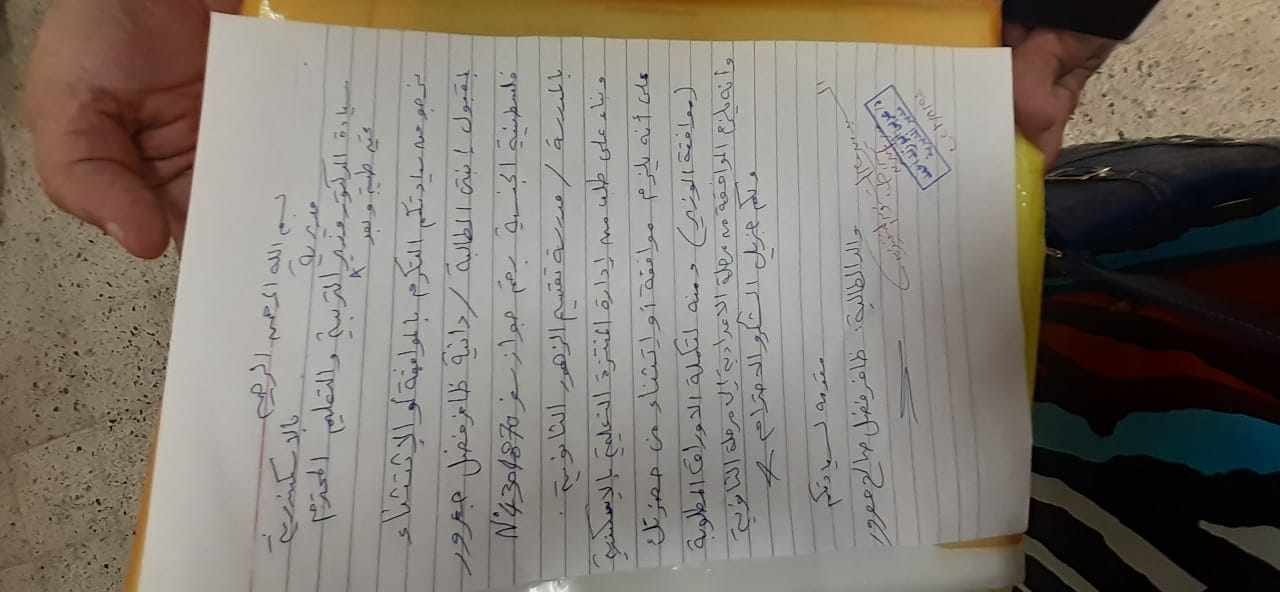 بسم الله الرحمن الرحيم
سيادة الدكتور مدير التربية والتعليم المحترم
مديرية
بالاسكندرية
تحية طيبة وبعد
نرجو من سيادتكم التكرم بالموافقة أو الاستثناء
بقبول ابنة الطالبة / دانية ظافر فضل عمرور
فلسطينية الجنسية رقم جواز سفر N°4304870
بالمدرسة / مدرسة تقسيم الزهور الثانوية
وبناء على طلب من إدارة المنتزه التعليمية بالاسكندرية
على أنه يلزم موافقة أو استثناء من حضرتك
(موافقة الوزير) ومنه لتكملة الاوراق المطلوبة
وأنه يلزم الموافقة من مرحلة الاعدادية للمرحلة الثانوية
ولكم جزيل الشكر والاحترام
مقدمه لسيادتكم
والد الطالبة: ظافر فضل صالح عمرور